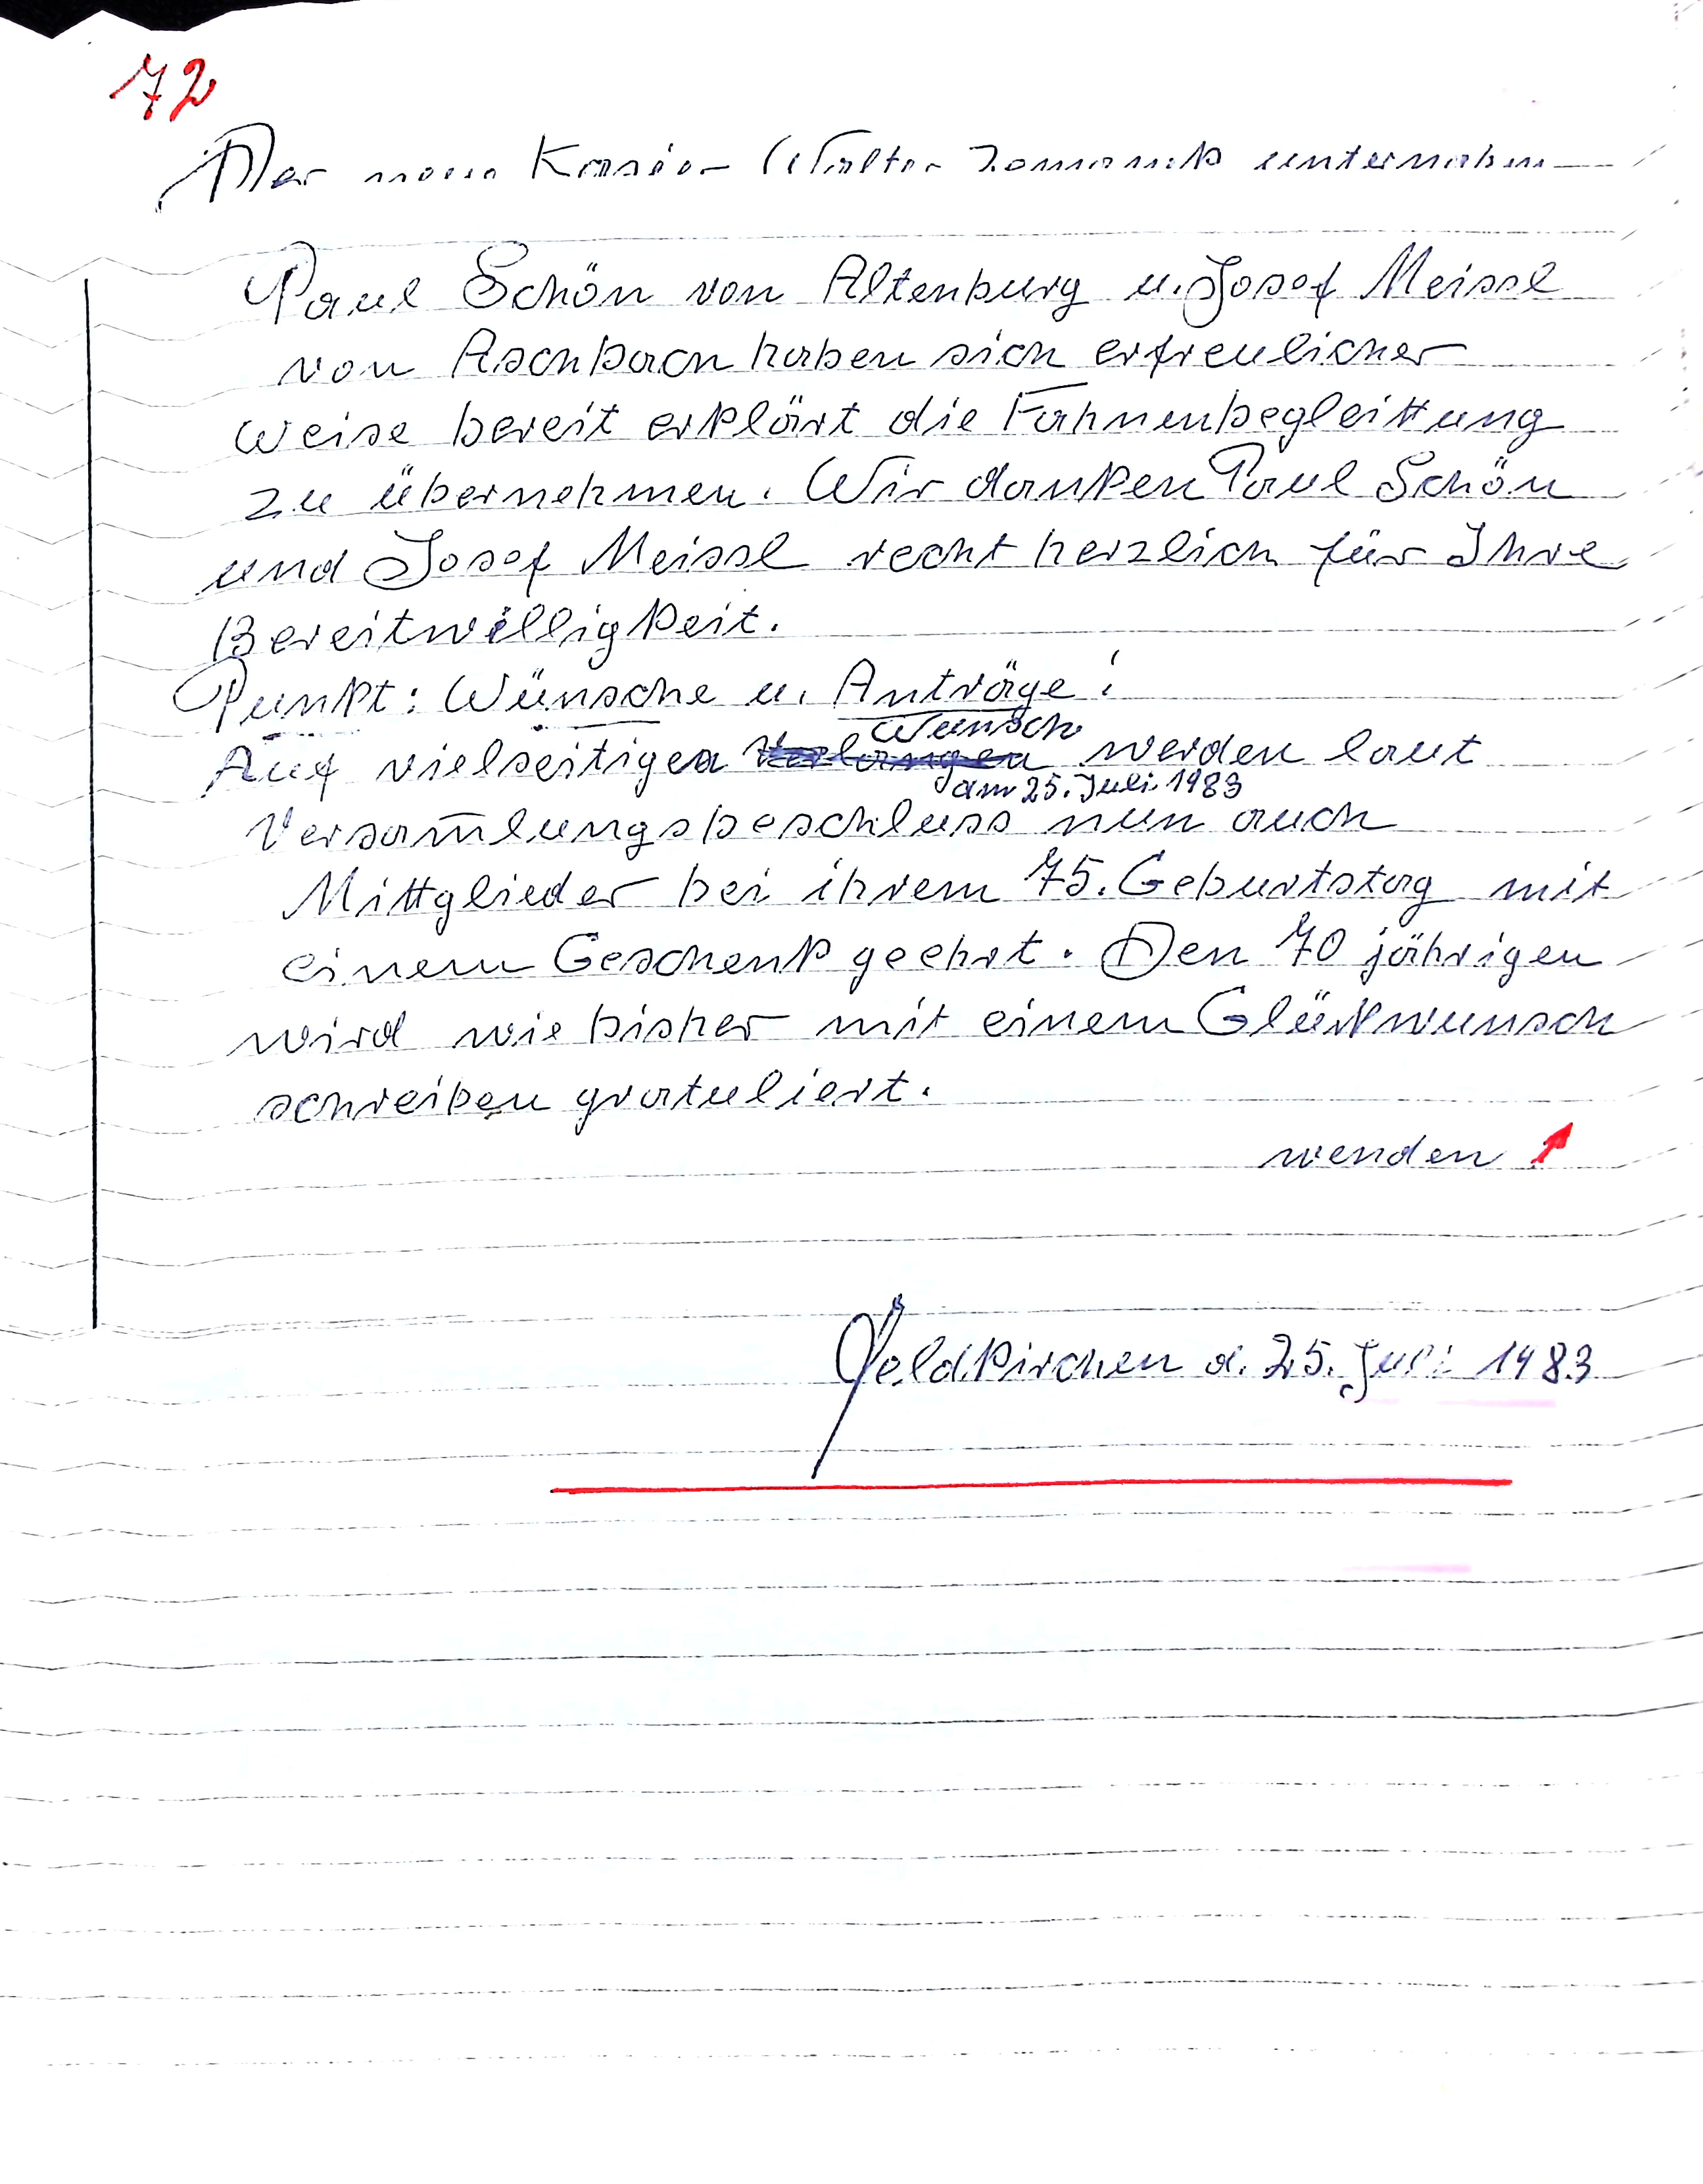 72
Der neue Kasier Walter unternahm
Paul Schön von Altenburg u. Josef Meissl
von Aschbach haben sich erfreulicher
weise bereit erklärt die Fahnenbegleittung
zu übernehmen. Wir danken Paul Schön
und Josef Meissl recht herzlich für Ihre
Bereitwilligkeit.
Punkt: Wünsche u. Anträge!
Wunsch
Auf vielseitigen Verlangen werden laut
am 25. Juli 1983
Versam̅lungsbeschluss nun auch
Mittglieder bei ihrem 75. Geburtstag mit
einem Geschenk geehrt. Den 70 jährigen
wird wie bisher mit einem Glükwunsch
schreiben gratuliert.
wenden
Feldkirchen d. 25. Juli 1983